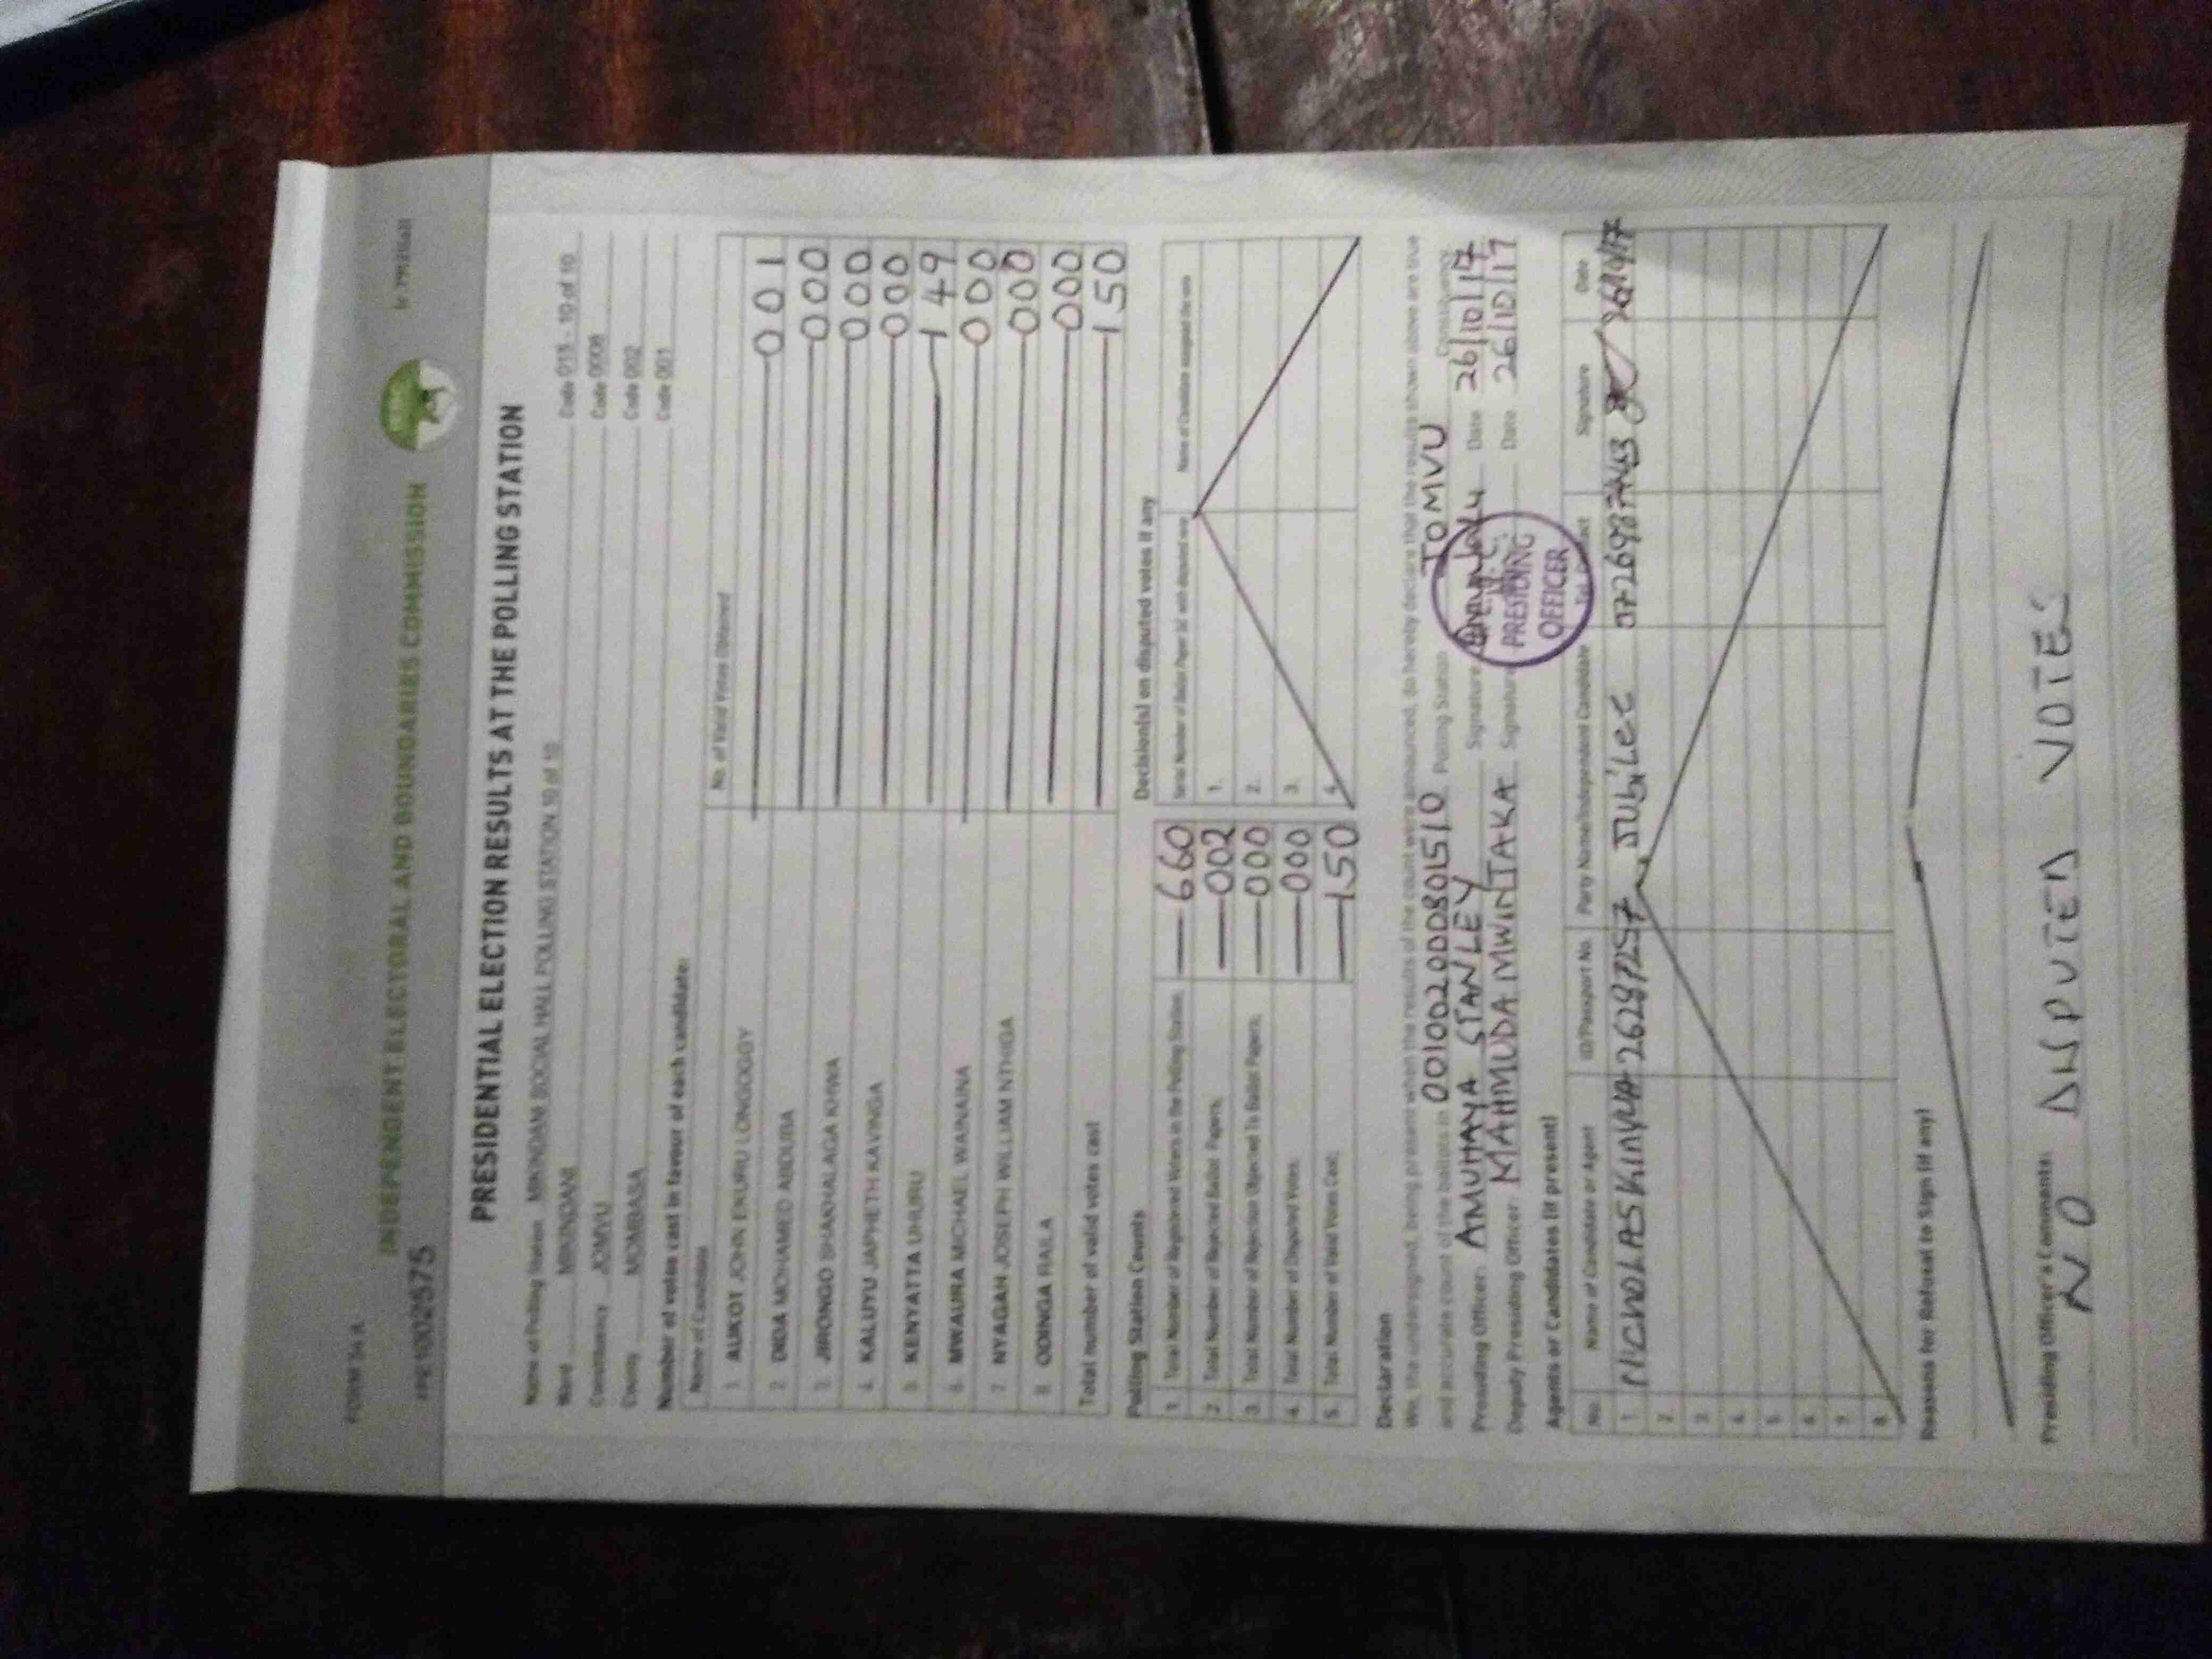 FORM 34 A
INDEPENDENT ELECTORAL AND BOUNDARIES COMMISSION
PRESIDENTIAL ELECTION RESULTS AT THE POLLING STATION
Name of Polling Station MIKINDANI SOCIAL HALL POLLING STATION 10 of 10 Code 015 - 10 of 10
Ward MIKINDANI Code 0008
Constituency JOMVU Code 002
County MOMBASA Code 001
Number of votes cast in favor of each candidate:
Name of Candidate No. of Valid Votes Obtained
1 AUKOT JOHN EKURU LONGOGGY 001
2 DIDA MOHAMED ABDUBA 000
3 JIRONGO SHAKHALAGA KHWA 000
4 KALUYU JAPHETH KAVINGA 000
5 KENYATTA UHURU 149
6 MWAURA MICHAEL WAINAINA 000
7 NYAGAH JOSEPH WILLIAM NTHIGA 000
8 ODINGA RAILA 000
Total number of valid votes cast 150
Polling Station Counts
1. Total Number of Registered Voters in the Polling Station 660
2. Total Number of Rejected Ballot Papers. 002
3. Total Number of Rejection Objected To Ballot Papers. 000
4. Total Number of Disputed Votes. 000
5. Total Number of Valid Votes Cast. 150
Decision(s) on disputed votes if any
1.
2.
3.
4.
Declaration
We, the undersigned, being present when the results of the count were announced, do hereby declare that the results shown above are true
and accurate count of the ballots in 001002000801510 Polling Station JOMVU Constituency
Presiding Officer: AMUHAYA STANLEY Signature Date 26/10/17
Deputy Presiding Officer: MAHMUDA MWINJAKA Signature Date 26/10/17
PRESIDING
OFFICER
Agents or Candidates (if present)
No. Name of Candidate or Agent ID/Passport No. Party Name/Independent Candidate Tel. Contact Signature Date
1 NICHOLAS Jubilee 26/10/17
2
3
4
5
6
7
8
Reasons for Refusal to Sign (if any)
Presiding Officer's Comments:
NO DISPUTED VOTES